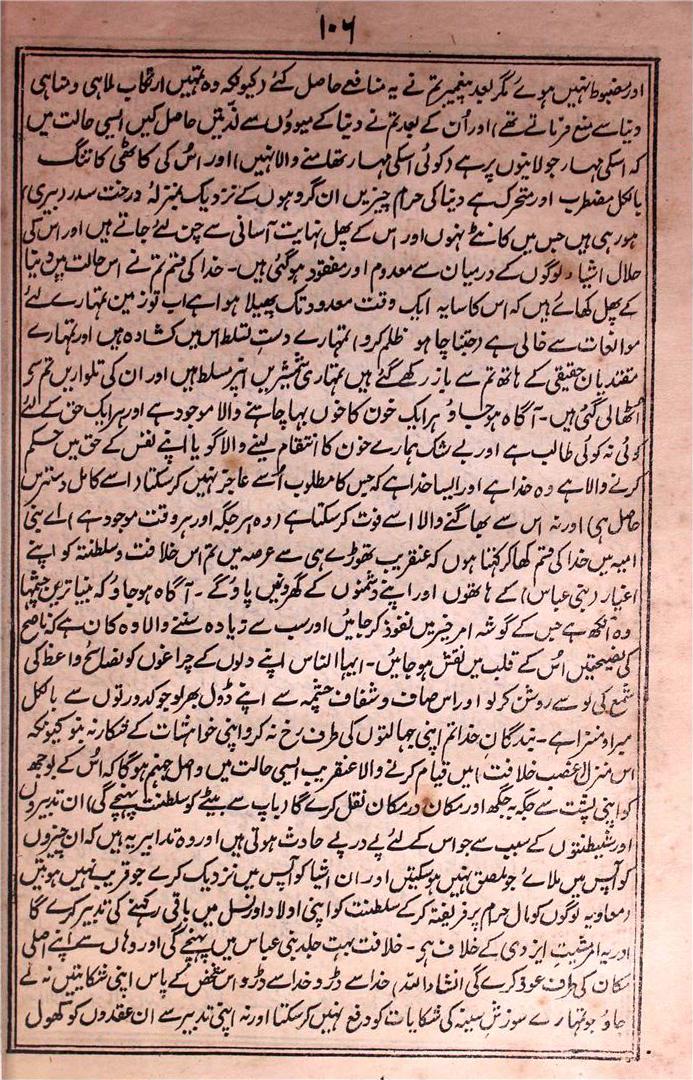 ۱۰۶
اور مضبوط نہیں ہوئے مگر بعد پیغمبر تم نے یہ منافع حاصل کئے (کیونکہ وہ تمہیں ارتکاب ملاہی و مناہی
دنیا سے منع فرماتے تھے) اور اُن کے بعد تم نے دنیا کے میووں سے لذتیں حاصل کیں ایسی حالت میں
کہ اسکی مہار جولانیوں پر ہے (کوئی اسکی مہار تھامنے والا نہیں) اور اس کی کاٹھی کا تنگ
بالکل مضطرب اور متحرک ہے دنیا کی حرام چیزیں ان گروہوں کے نزدیک بمنزلہ درخت سدر (بیری)
ہو رہی ہیں جس میں کانٹے نہوں اور اس کے پھل نہایت آسانی سے چن لئے جاتے ہیں اور اس کی
حلال اشیا لوگوں کے درمیان سے معدوم اور مفقود ہوگئی ہیں۔ خدا کی قسم تم نے اس حالت میں دنیا
کے پھل کھائے ہیں کہ اس کا سایہ ایک وقت معدود تک پھیلا ہوا ہے اب تو زمین تمہارے لئے
موانعات سے خالی ہے (جتنا چاہو ظلم کرو) تمہارے دست تسلط اس میں کشادہ ہیں اور تمہارے
مقتدیان حقیقی کے ہاتھ تم سے باز رکھے گئے ہیں تمہاری شمشیریں انپر مسلط ہیں اور ان کی تلواریں تم سے
اٹھالی گئی ہیں۔ آگاہ ہو جاؤ ہر ایک خون کا خوں بہا چاہنے والا موجود ہے اور ہر ایک حق کے لئے
کوئی نہ کوئی طالب ہے اور بے شک ہمارے خون کا انتقام لینے والا گویا اپنے نفس کے حق میں حکم
کرنے والا ہے وہ خدا ہے اور ایسا خدا ہے کہ جس کا مطلوب اُسے عاجز نہیں کرسکتا (اسے کامل دسترس
حاصل ہی) اور نہ اس سے بھاگنے والا اسے فوت کرسکتا ہے (وہ ہر جگہ اور ہر وقت موجود ہے) اے بنی
امیہ میں خدا کی قسم کھا کر کہتا ہوں کہ عنقریب تھوڑے ہی سے عرصہ میں تم اس خلافت و سلطنت کو اپنے
اغیار (بنی عباس) کے ہاتھوں اور اپنے دشمنوں کے گھرونمیں پاؤ گے۔ آگاہ ہو جاؤ کہ بینا ترین چشمہا
وہ آنکھ ہے جس کے گوشہ امر خیر میں نفوذ کر جائیں اور سب سے زیادہ سننے والا وہ کان ہے کہ ناصح
کی نصیحتیں اس کے قلب میں نقش ہو جائیں۔ ایہا الناس اپنے دلوں کے چراغوں کو نصائح واعظ کی
شمع کی لو سے روشن کرلو اور اس صاف و شفاف چشمہ سے اپنے ڈول بھر لو جو کدورتوں سے بالکل
مبرا و منزا ہے۔ بندگان خدا تم اپنی جہالتوں کی طرف رخ نہ کرو اپنی خواہشات کے شکار نہ بنو کیونکہ
اس منزل (غصب خلافت) میں قیام کرنے والا عنقریب ایسی حالت میں داخل جہنم ہوگا کہ اُس کے بوجھ
کو اپنی پشت سے جگہ بہ جگھ اور مکان در مکان نقل کرے گا (باپ سے بیٹے کو سلطنت پہنچے گی) ان تدبیروں
اور شیطنتوں کے سبب سے جو اس کے لئے پے در پے حادث ہوتی ہیں اور وہ تدابیر یہ ہیں کہ ان چیزوں
کو آپس میں ملائے جو ملصق نہیں ہوسکتیں اور ان اشیا کو آپس میں نزدیک کرے جو قریب نہیں ہوتیں
(معاویہ لوگوں کو مال حرام پر فریفتہ کرکے سلطنت کو اپنی اولاد اور نسل میں باقی رکھنے کی تدبیر کرے گا
اور یہ امر مشیت ایزدی کے خلاف ہی۔ خلافت بہت جلد بنی عباس میں پہنچے گی اور وہاں سے اپنے اصلی
مکان کی طرف عود کرے گی انشاء اللہ) خدا سے ڈرو خدا سے ڈرو اس شخص کے پاس اپنی شکایتیں نہ لے
جاؤ جو تمہارے سوزش سینہ کی شکایات کو دفع نہیں کرسکتا اور نہ اپنی تدبیر سے ان عقدوں کو کھول